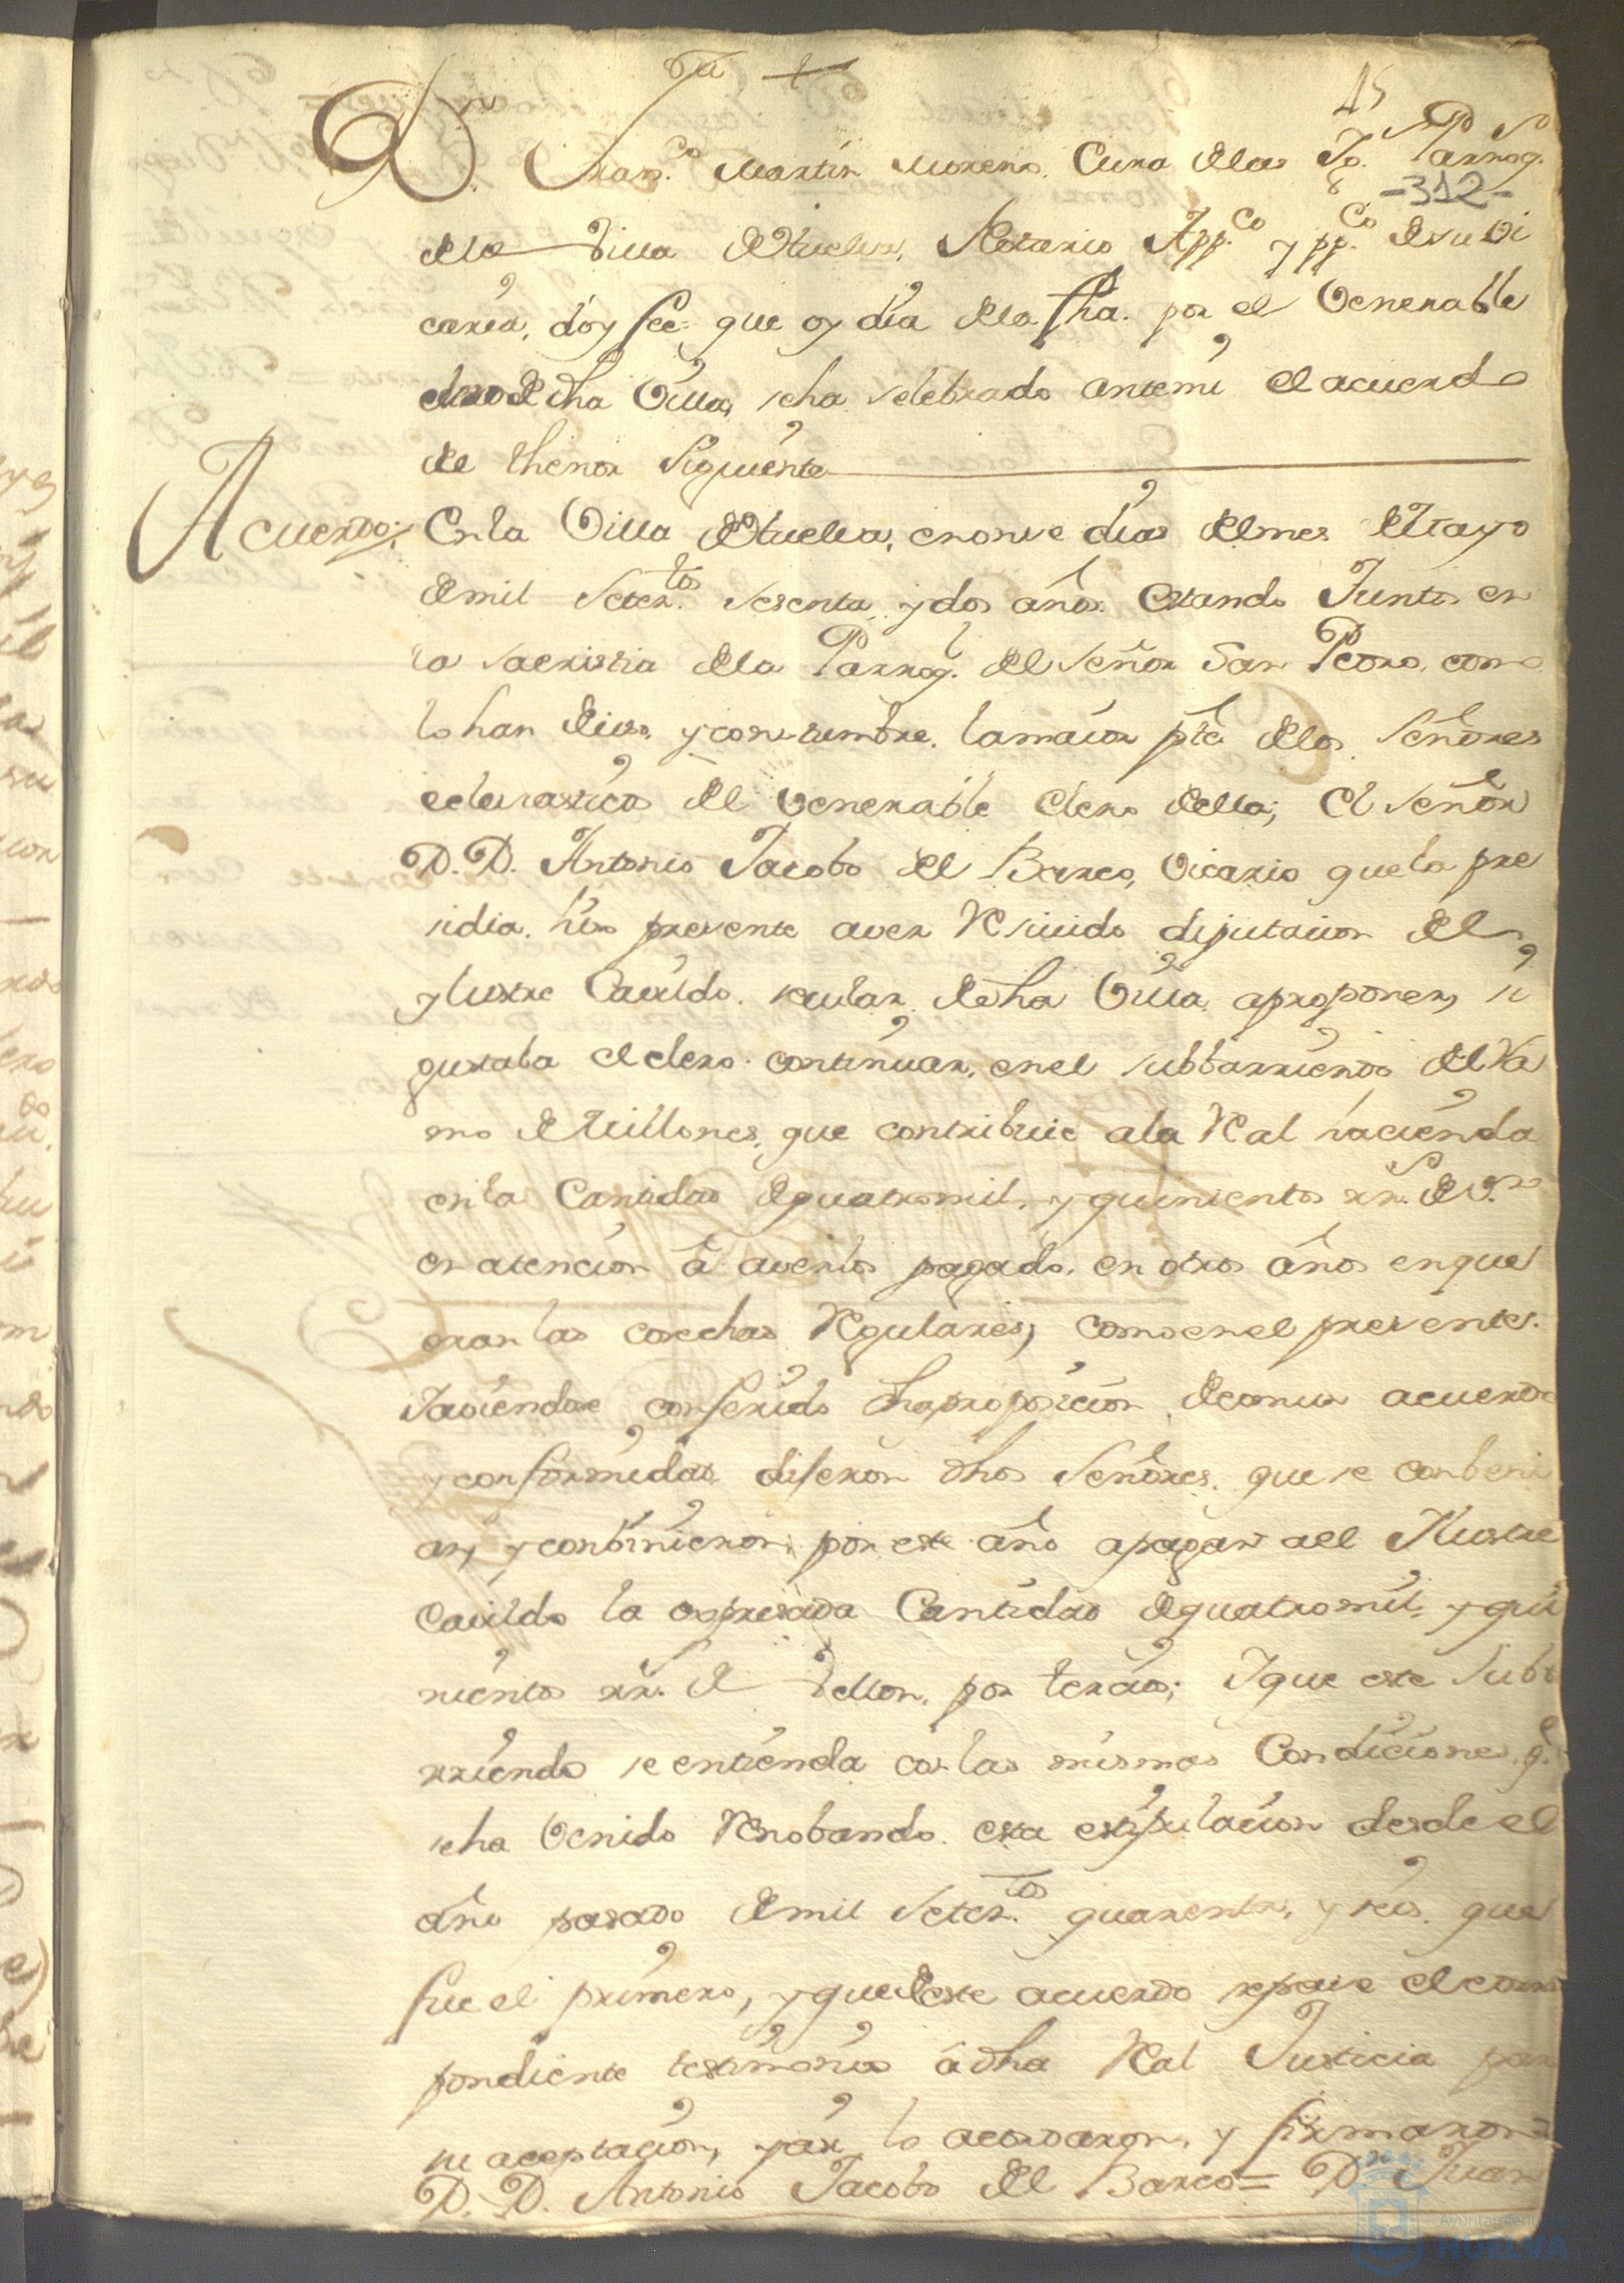 15
-312-
Dn. Fran.co Martin Moreno, Cura de las Ig.s Parroq.s
de la Villa de Huelva, Notario App.co y pp.co de su Vi
caria, doy fee que oy dia de la fha. por el Venerable
clero de dha Villa, se ha selebrado ante mi el acuerdo
de thenor siguiente
Acuerdo. En la Villa de Huelva, en onse dias del mes de Mayo
de mil Seter.tos sesenta, y dos años. Estando Juntos en
la sacristia de la Parroq.l del Señor San Pedro, como
lo han de uso, y constumbre, la maior pte de los Señores
eclesiasticos del Venerable Clero de ella; el Señor
D. D. Antonio Jacobo del Barco, Vicario que lo pre
sidia, hiso presente aver Resiuido diputacion del
ylustre Cavildo secular de dha Villa, a proponer, si
gustaba el clero continuar, en el subbarriendo del Ra
mo de Millones, que contribuie a la Real hacienda
en la Cantidad de quatro mil, y quinientos rr.s de v.on
en atencion â averlos pagado, en otros años en que
eran las cosechas Regulares, como en el presente.
Y aviendose conferido dha proposicion, de comun acuerdo
y conformidad dijeron dhos Señores, que se conbeni
an, y conbinieron, por este año a pagar a el Ylustre
Cavildo la expresada Cantidad de quatro mil, y qui
nientos rr.s de Vellon, por tercios; Y que este Subb
rriendo se entienda con las mismas Condiciones, q.e
se ha Venido Renobando esta estipulacion desde el
año pasado de mil Seter.tos quarenta, y seis, que
fue el primero, y que de este acuerdo se pase el corres
pondiente testimonio â dha Real Justicia para
su aceptacion, y asi lo acordaron, y firmaron=
D. D. Antonio Jacobo del Barco= Dn Juan
Ayuntamiento de
HUELVA